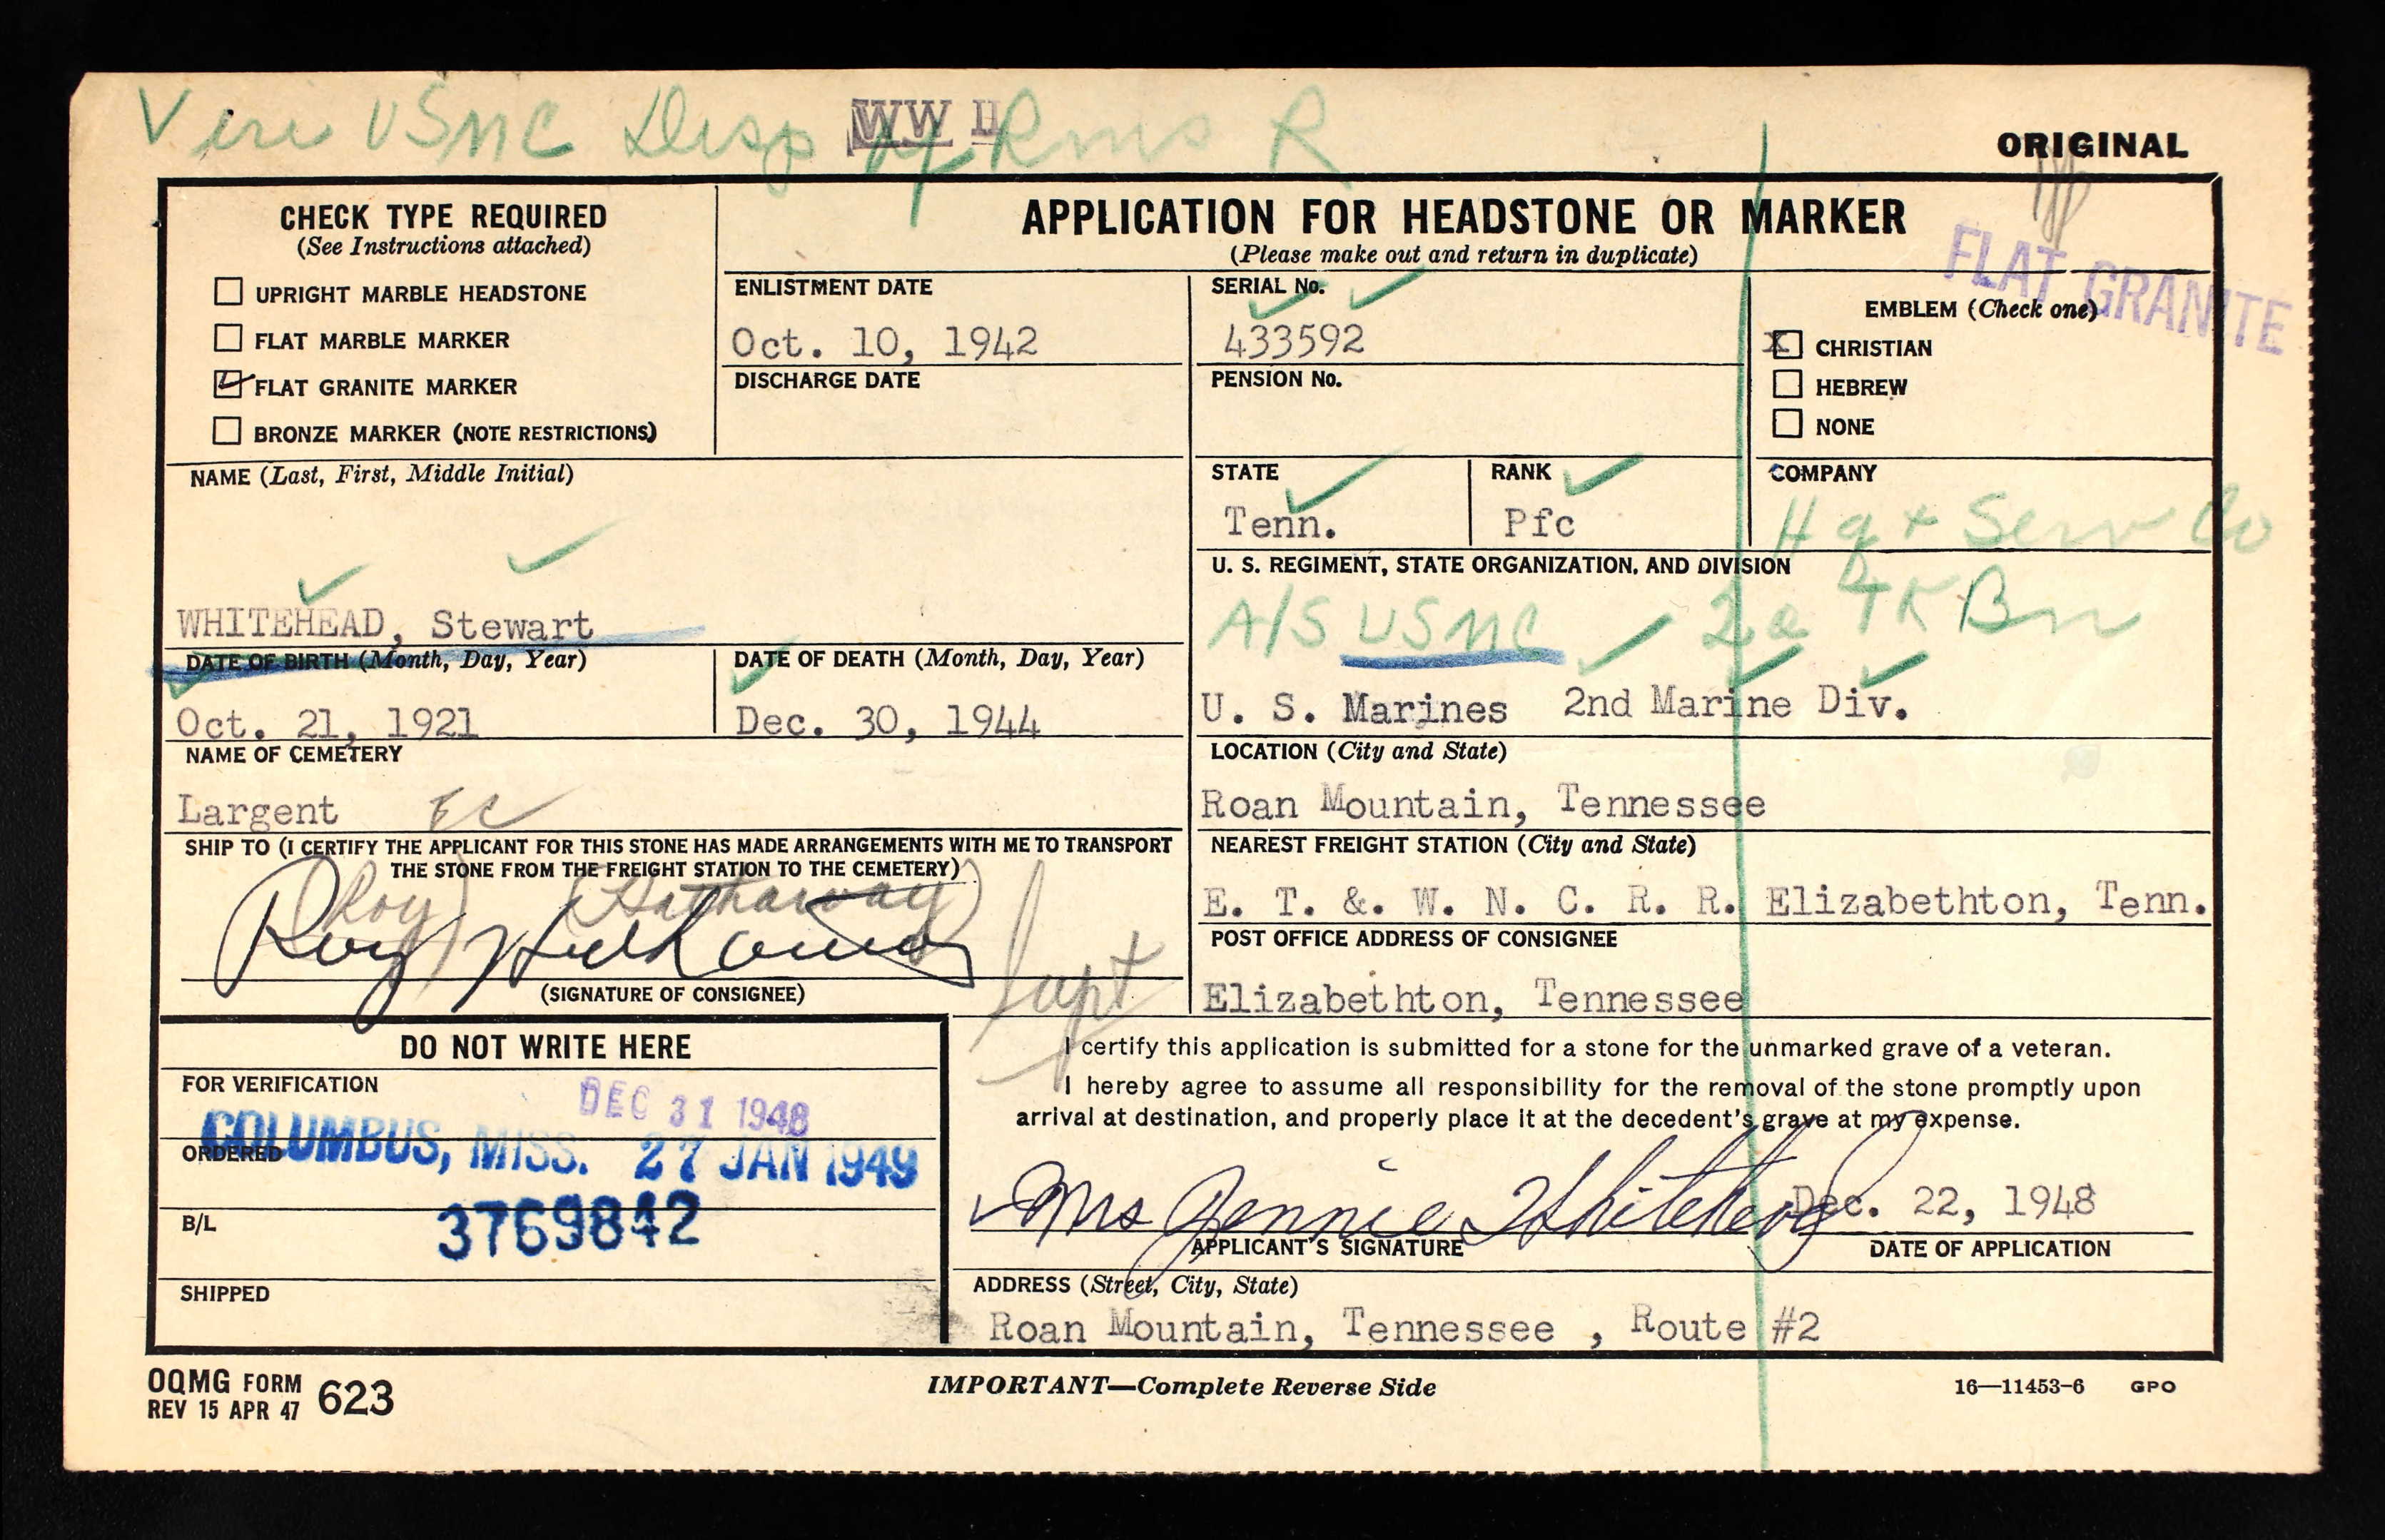 Veri USMC Disp of Rms R
WW II
ORIGINAL
CHECK TYPE REQUIRED
(See Instructions attached)
UPRIGHT MARBLE HEADSTONE
FLAT MARBLE MARKER
FLAT GRANITE MARKER
BRONZE MARKER (NOTE RESTRICTIONS)
APPLICATION FOR HEADSTONE OR MARKER
(Please make out and return in duplicate)
FLAT GRANITE
ENLISTMENT DATE
Oct. 10, 1942
DISCHARGE DATE
SERIAL No.
433592
PENSION No.
EMBLEM (Check one)
X CHRISTIAN
HEBREW
NONE
NAME (Last, First, Middle Initial)
WHITEHEAD, Stewart
STATE
Tenn.
RANK
Pfc
COMPANY
Hq + Serv Co
U. S. REGIMENT, STATE ORGANIZATION, AND DIVISION
A/S USMC 2d TK Bn
U. S. Marines 2nd Marine Div.
DATE OF BIRTH (Month, Day, Year)
Oct. 21, 1921
DATE OF DEATH (Month, Day, Year)
Dec. 30, 1944
NAME OF CEMETERY
Largent
LOCATION (City and State)
Roan Mountain, Tennessee
SHIP TO (I CERTIFY THE APPLICANT FOR THIS STONE HAS MADE ARRANGEMENTS WITH ME TO TRANSPORT
THE STONE FROM THE FREIGHT STATION TO THE CEMETERY)
(Roy) (Hathaway)
Roy Hathaway Supt
(SIGNATURE OF CONSIGNEE)
NEAREST FREIGHT STATION (City and State)
E. T. &. W. N. C. R. R. Elizabethton, Tenn.
POST OFFICE ADDRESS OF CONSIGNEE
Elizabethton, Tennessee
DO NOT WRITE HERE
FOR VERIFICATION
DEC 31 1948
COLUMBUS, MISS. 27 JAN 1949
ORDERED
B/L
3769842
SHIPPED
I certify this application is submitted for a stone for the unmarked grave of a veteran.
I hereby agree to assume all responsibility for the removal of the stone promptly upon
arrival at destination, and properly place it at the decedent's grave at my expense.
Mrs Jennie Whitehead
Dec. 22, 1948
APPLICANT'S SIGNATURE
DATE OF APPLICATION
ADDRESS (Street, City, State)
Roan Mountain, Tennessee , Route #2
OQMG FORM 623
REV 15 APR 47
IMPORTANT—Complete Reverse Side
16—11453-6 GPO